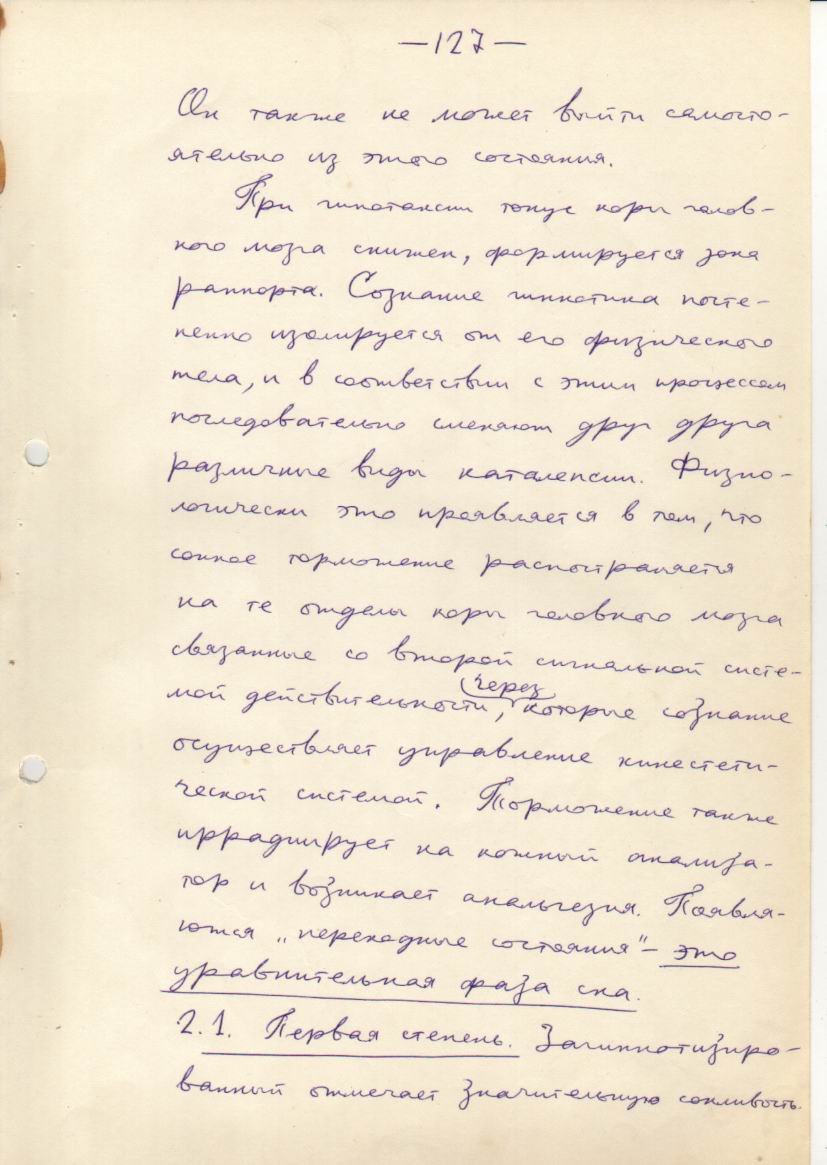 —127—
Он также не может выйти самосто-
ятельно из этого состояния.
При гипотаксии тонус коры голов-
ного мозга снижен, формируется зона
раппорта. Сознание гипнотика посте-
пенно изолируется от его физического
тела, и в соответствии с этим процессом
последовательно сменяют друг друга
различные виды каталепсии. Физио-
логически это проявляется в том, что
сонное торможение распостраняется
на те отделы коры головного мозга
связанные со второй сигнальной систе-
мой действительности, через которые сознание
осуществляет управление кинестети-
ческой системой. Торможение также
иррадиирует на кожный анализа-
тор и возникает анальгезия. Появля-
ются „переходные состояния" – это
уравнительная фаза сна.
2.1. Первая степень. Загипнотизиро-
ванный отмечает значительную сонливость.